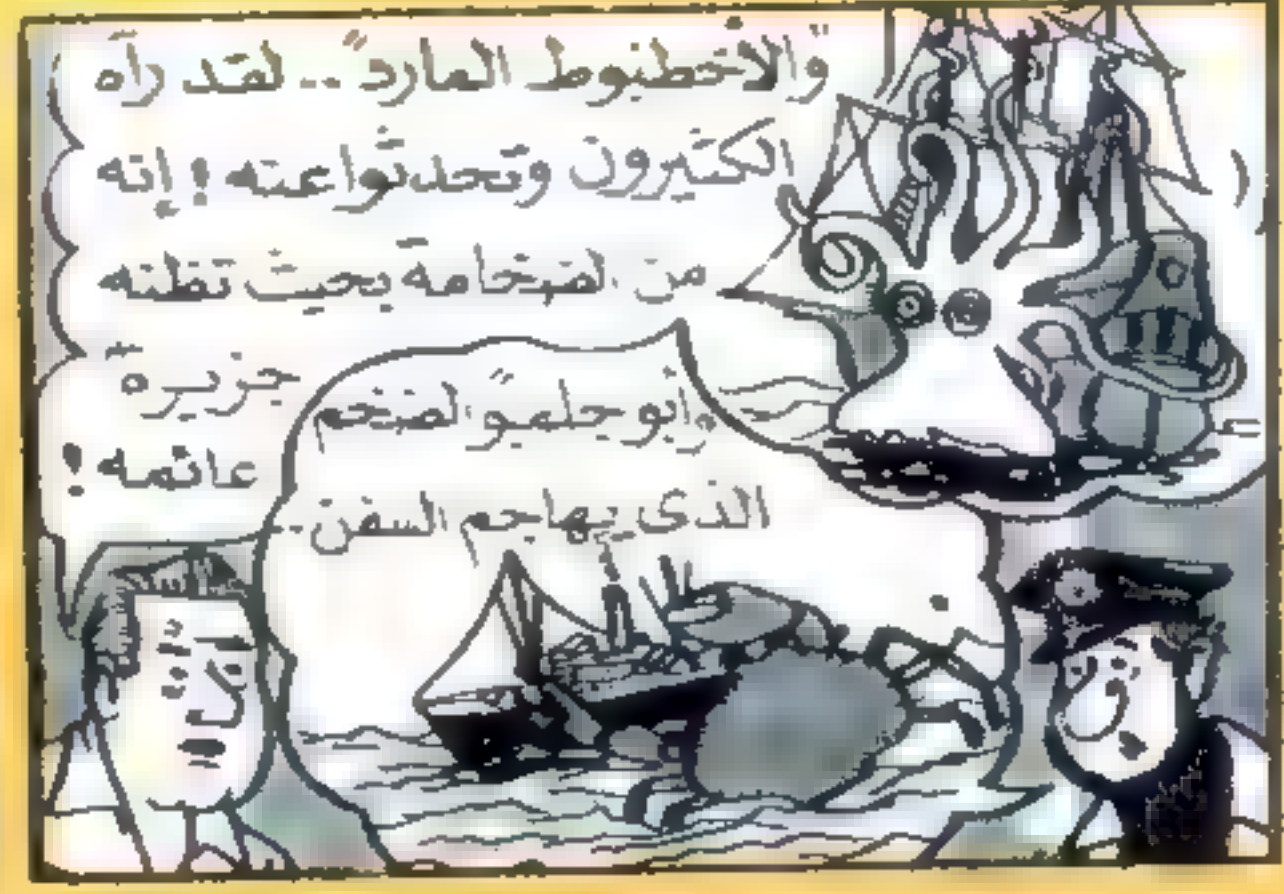 "والأخطبوط المارد" .. لقد رآه
الكثيرون وتحدثوا عنه ! إنه
من الضخامة بحيث تظنه
جزيرة
عائمه !
وأبو جلمبو الضخم
الذى يهاجم السفن ..